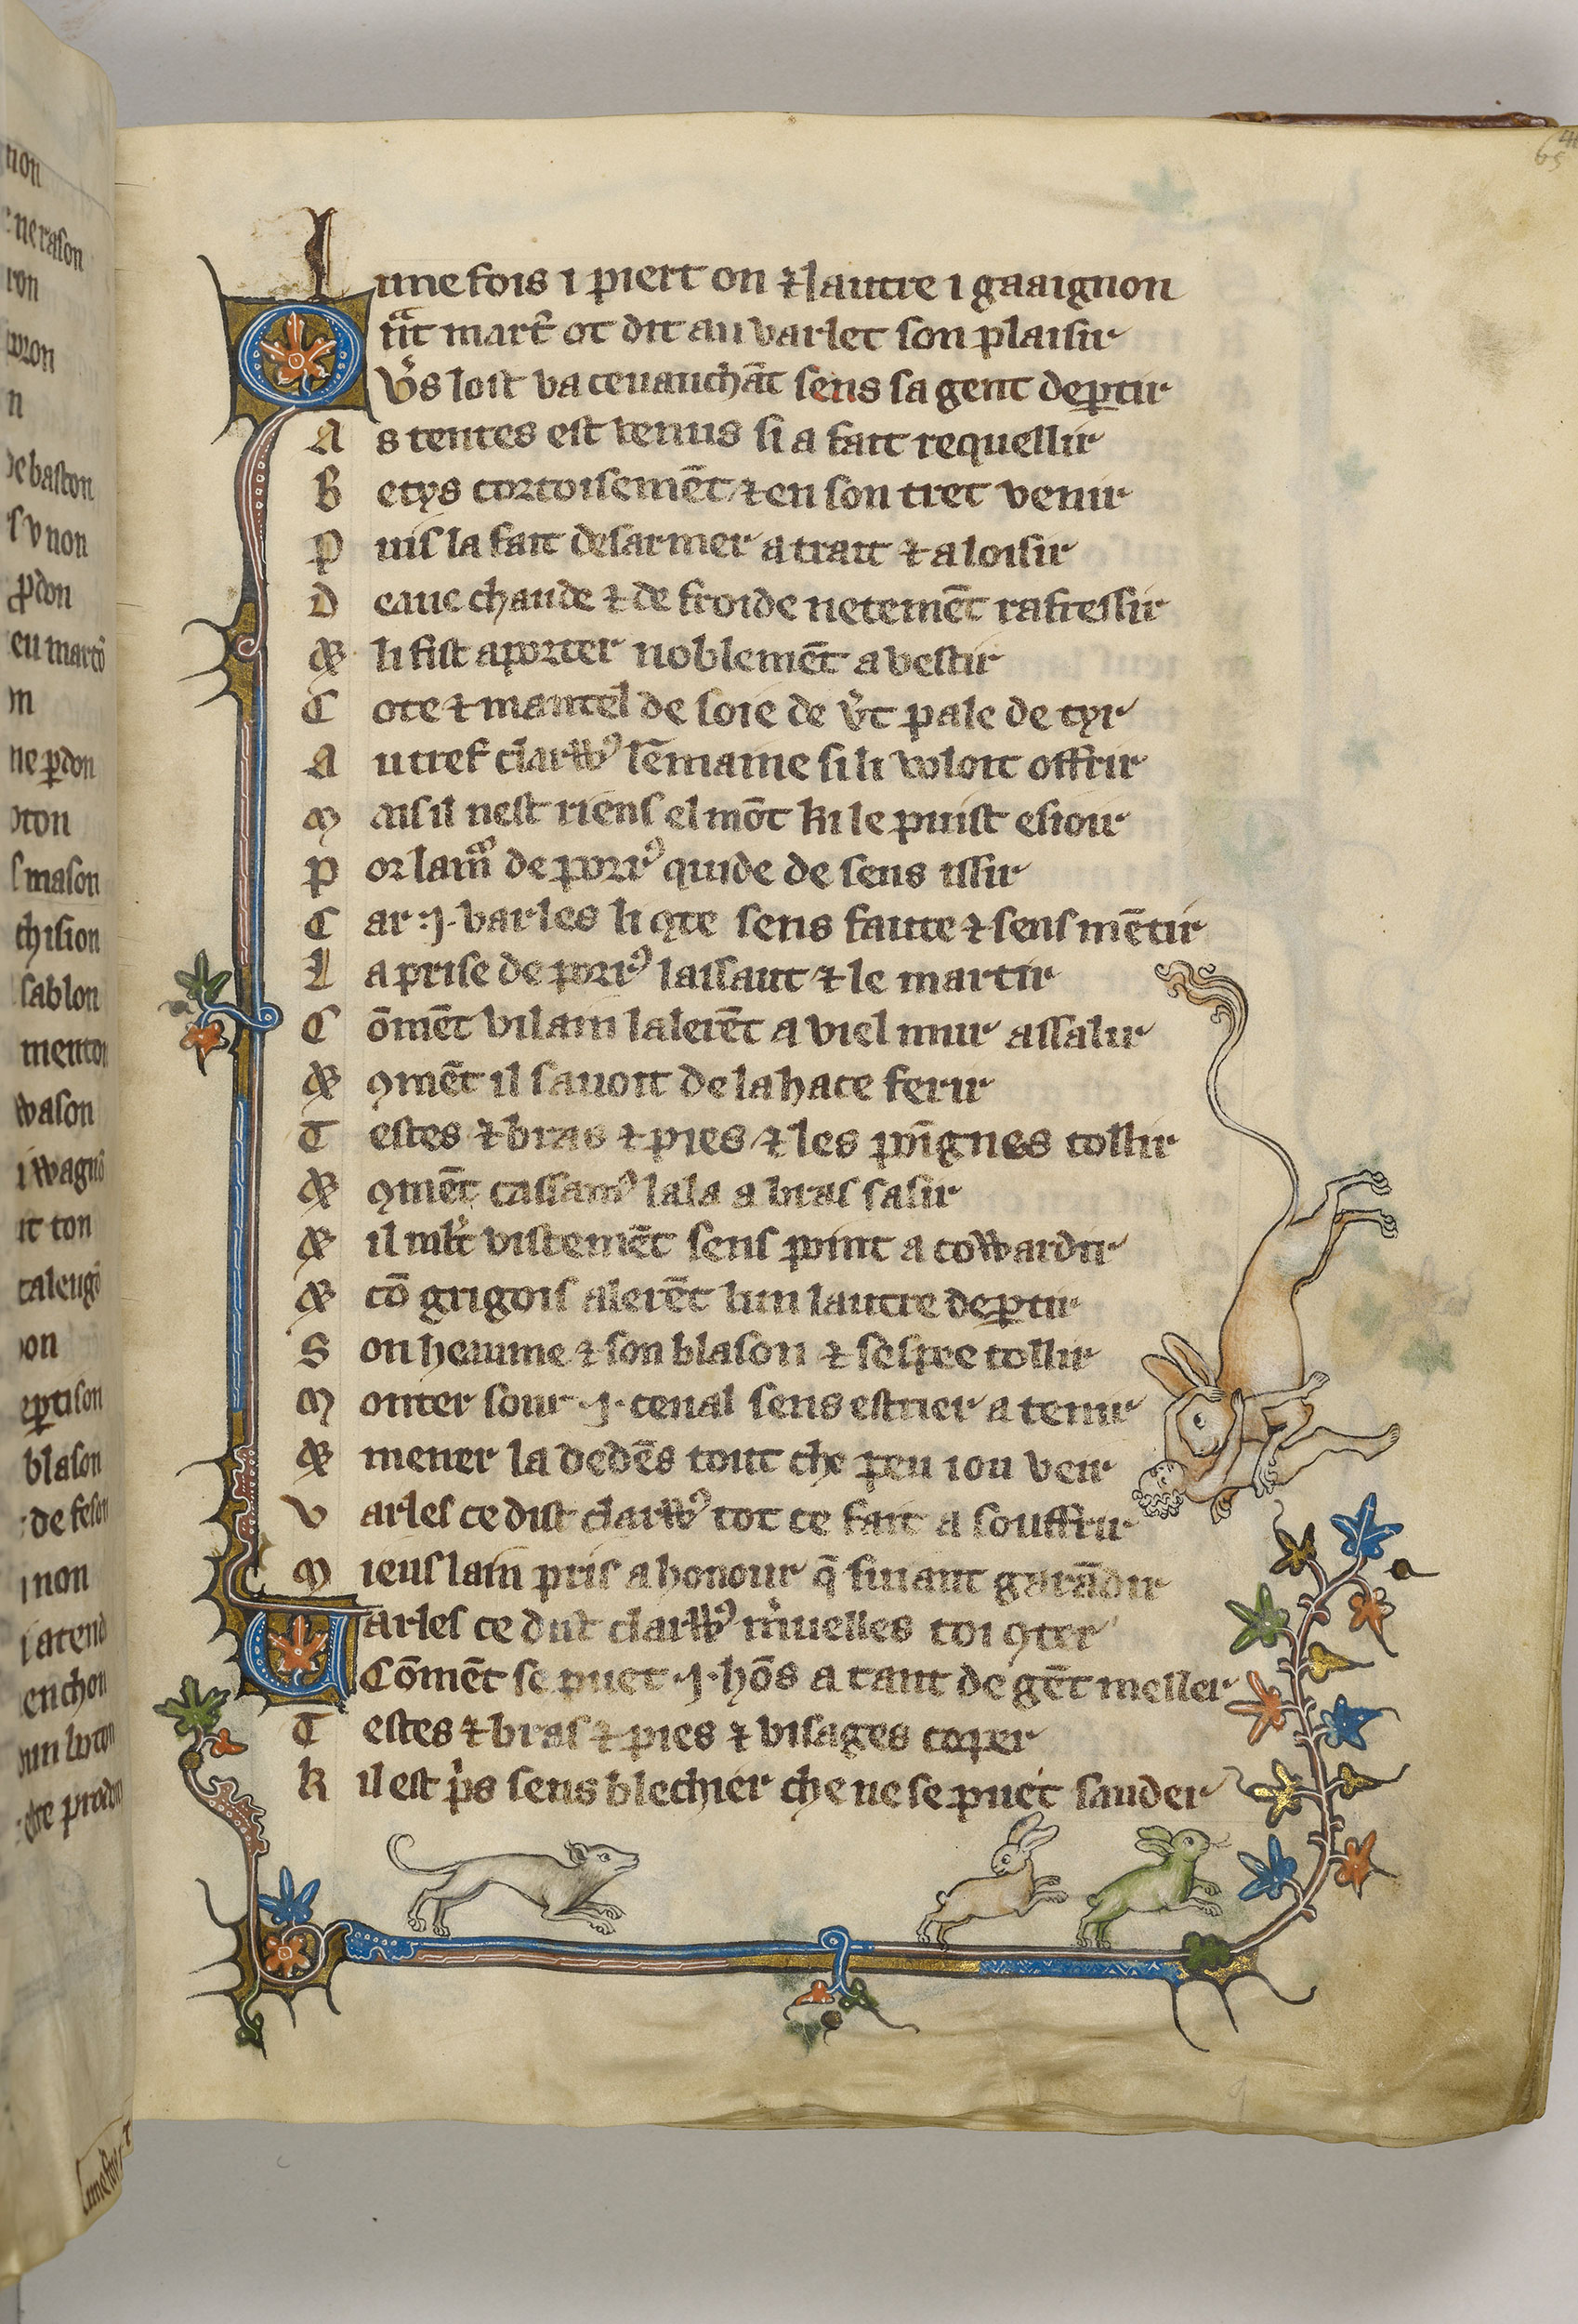 L une fois i piert on ⁊ lautre i gaaignon
Q ᷓnt mart̄ ot dit au varlet son plaisir
v̓s lost va ceuauchāt sens sa gent dep̱tir
A s tentes est venus si a fait requellir
B etys cortoisemēt ⁊ en son tret venir
P uis la fait desarmer a trait ⁊ a loisir
D eaue chaude ⁊ de froide netemēt rafressir
⁊ li fist aporter noblemēt a vestir
C ote ⁊ mantel de soie de v̓t pale de tyr
A utref clarwꝰ lēmaine si li voloit offrir
M ais il nest riens el mōt ki le puist esioir
P or lam̄ de porrꝰ quide de sens issir
C ar .j. varles li ꝯte sens faute ⁊ sens mētir
L a prise de porrꝰ lassaut ⁊ le martir
C ōmēt vilain lalerēt a viel mur assalir
⁊ ꝯmēt il sauoit de la hace ferir
T estes ⁊ bras ⁊ pies ⁊ les poīgnes tollir
⁊ ꝯmēt cassamꝰ lala a bras saisir
⁊ il vistemēt sens point a cowardir
⁊ cō grigois alerēt lun lautre dep̱tir
S on heaume ⁊ son blason ⁊ sespee tollir
M onter sour .j. ceual sens estrier a tenir
⁊ mener la dedēs tout che peu iou veir
V arles ce dist clarwꝰ tot ce fait a souffrir
M ieus laim pris a honour q̄ fuiant garādir
V arles ce dist clarwꝰ m̓uelles toi ꝯter
Cōmēt se puet .j. hōs a tant de gēt meller
T estes ⁊ bras ⁊ pies ⁊ visages coper
K il est p̓s sens blechier che ne se puet sauder